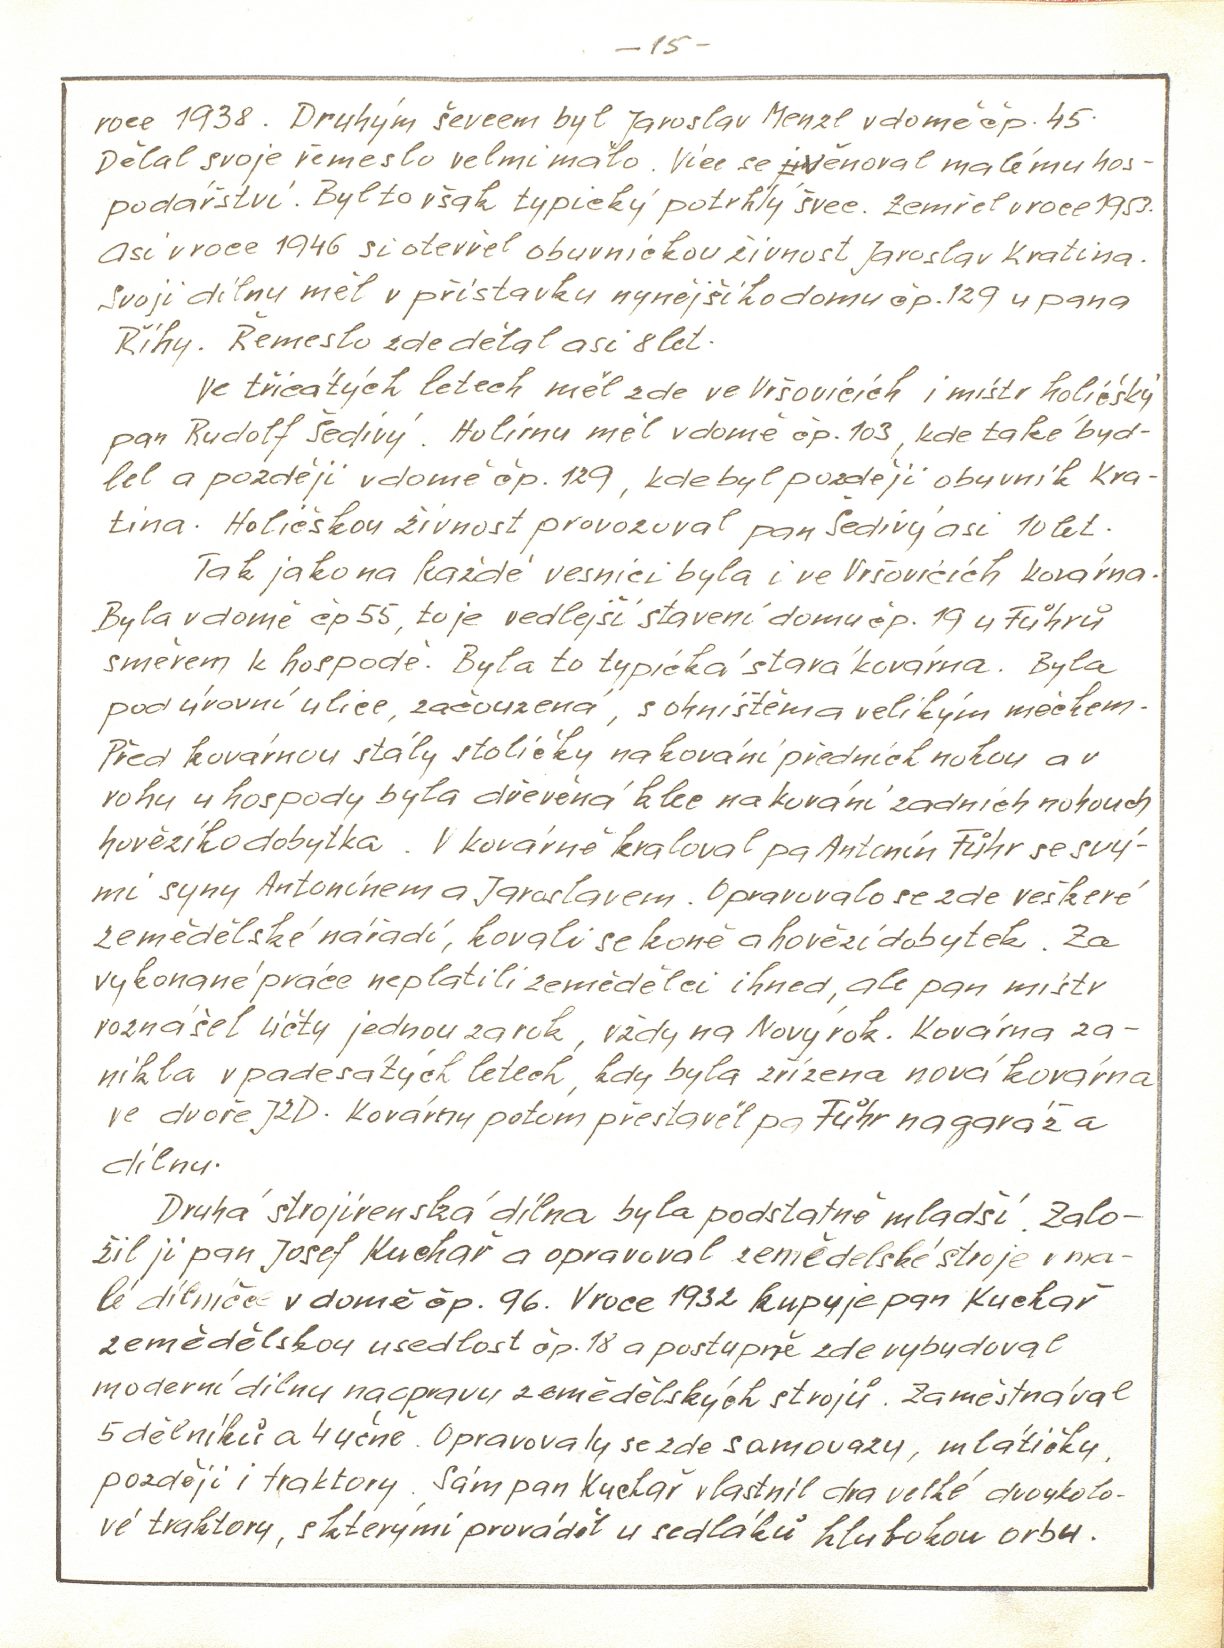 - 15 -
roce 1938. Druhým ševcem byl Jaroslav Menzl v domě čp. 45.
Dělal svoje řemeslo velmi málo. Více se věnoval malému hos-
podářství. Byl to však typický potrhlý švec. Zemřel v roce 1953.
Asi v roce 1946 si otevřel obuvnickou živnost Jaroslav Kratina.
Svoji dílnu měl v přístavku nynějšího domu čp. 129 u pana
Říhy. Řemeslo zde dělal asi 8 let.
Ve třicátých letech měl zde ve Vršovicích i mistr holičský
pan Rudolf Šedivý. Holírnu měl v domě čp. 103, kde také byd-
lel a později v domě čp. 129, kde byl později obuvník Kra-
tina. Holičskou živnost provozoval pan Šedivý asi 10 let.
Tak jako na každé vesnici byla i ve Vršovicích kovárna.
Byla v domě čp 55, to je vedlejší stavení domu čp. 19 u Fůhrů
směrem k hospodě. Byla to typická stará kovárna. Byla
pod úrovní ulice, začouzená, s ohništěm a velikým měchem.
Před kovárnou stály stoličky na kování předních nohou a v
rohu u hospody byla dřevěná klec na kování zadních nohou h
hovězího dobytka. V kovárně kraloval pa Antonín Fůhr se svý-
mi syny Antonínem a Jaroslavem. Opravovalo se zde veškeré
zemědělské nářadí, kovali se koně a hovězí dobytek. Za
vykonané práce neplatili zemědělci ihned, ale pan mistr
roznášel účty jednou za rok, vždy na Nový rok. Kovárna za-
nikla v padesátých letech, kdy byla zřízena nová kovárna
ve dvoře JZD. Kovárnu potom přestavěl pa Fůhr na garáž a
dílnu.
Druhá strojírenská dílna byla podstatně mladší. Zalo-
žil ji pan Josef Kuchař a opravoval zemědelské stroje v ma-
lé dílničce v domě čp. 96. V roce 1932 kupuje pan Kuchař
zemědělskou usedlost čp. 18 a postupně zde vybudoval
moderní dílnu na opravu zemědělských strojů. Zaměstnával
5 dělníků a 4 učně. Opravovaly se zde samovazy, mlátičky,
později i traktory. Sám pan Kuchař vlastnil dva velké dvoukolo-
vé traktory, s kterými prováděl u sedláků hlubokou orbu.